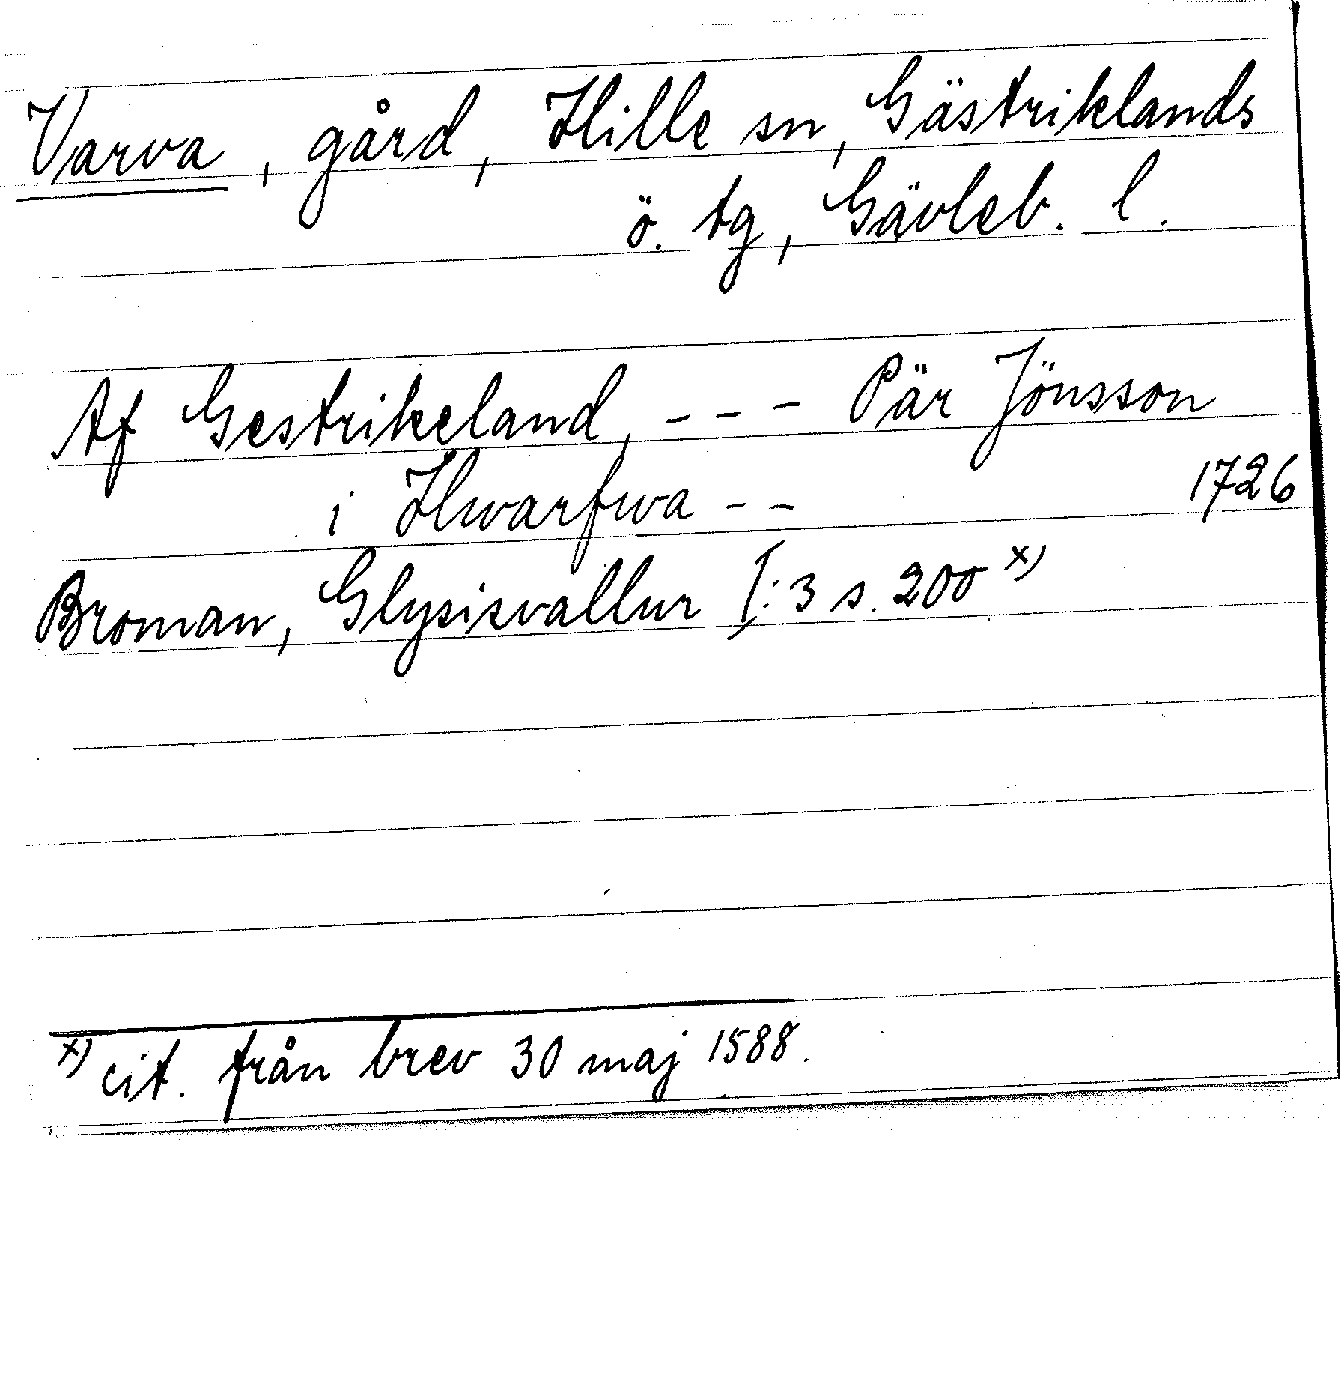 Varva, gård, Hille sn, Gästriklands
ö. tg, Gävleb. l.
Af Gestrikeland, --- Pär Jönsson
i Hwarfwa -- 1726
Broman, Glysisvallur I:3 s. 200 x)
x) cit. från brev 30 maj 1588.